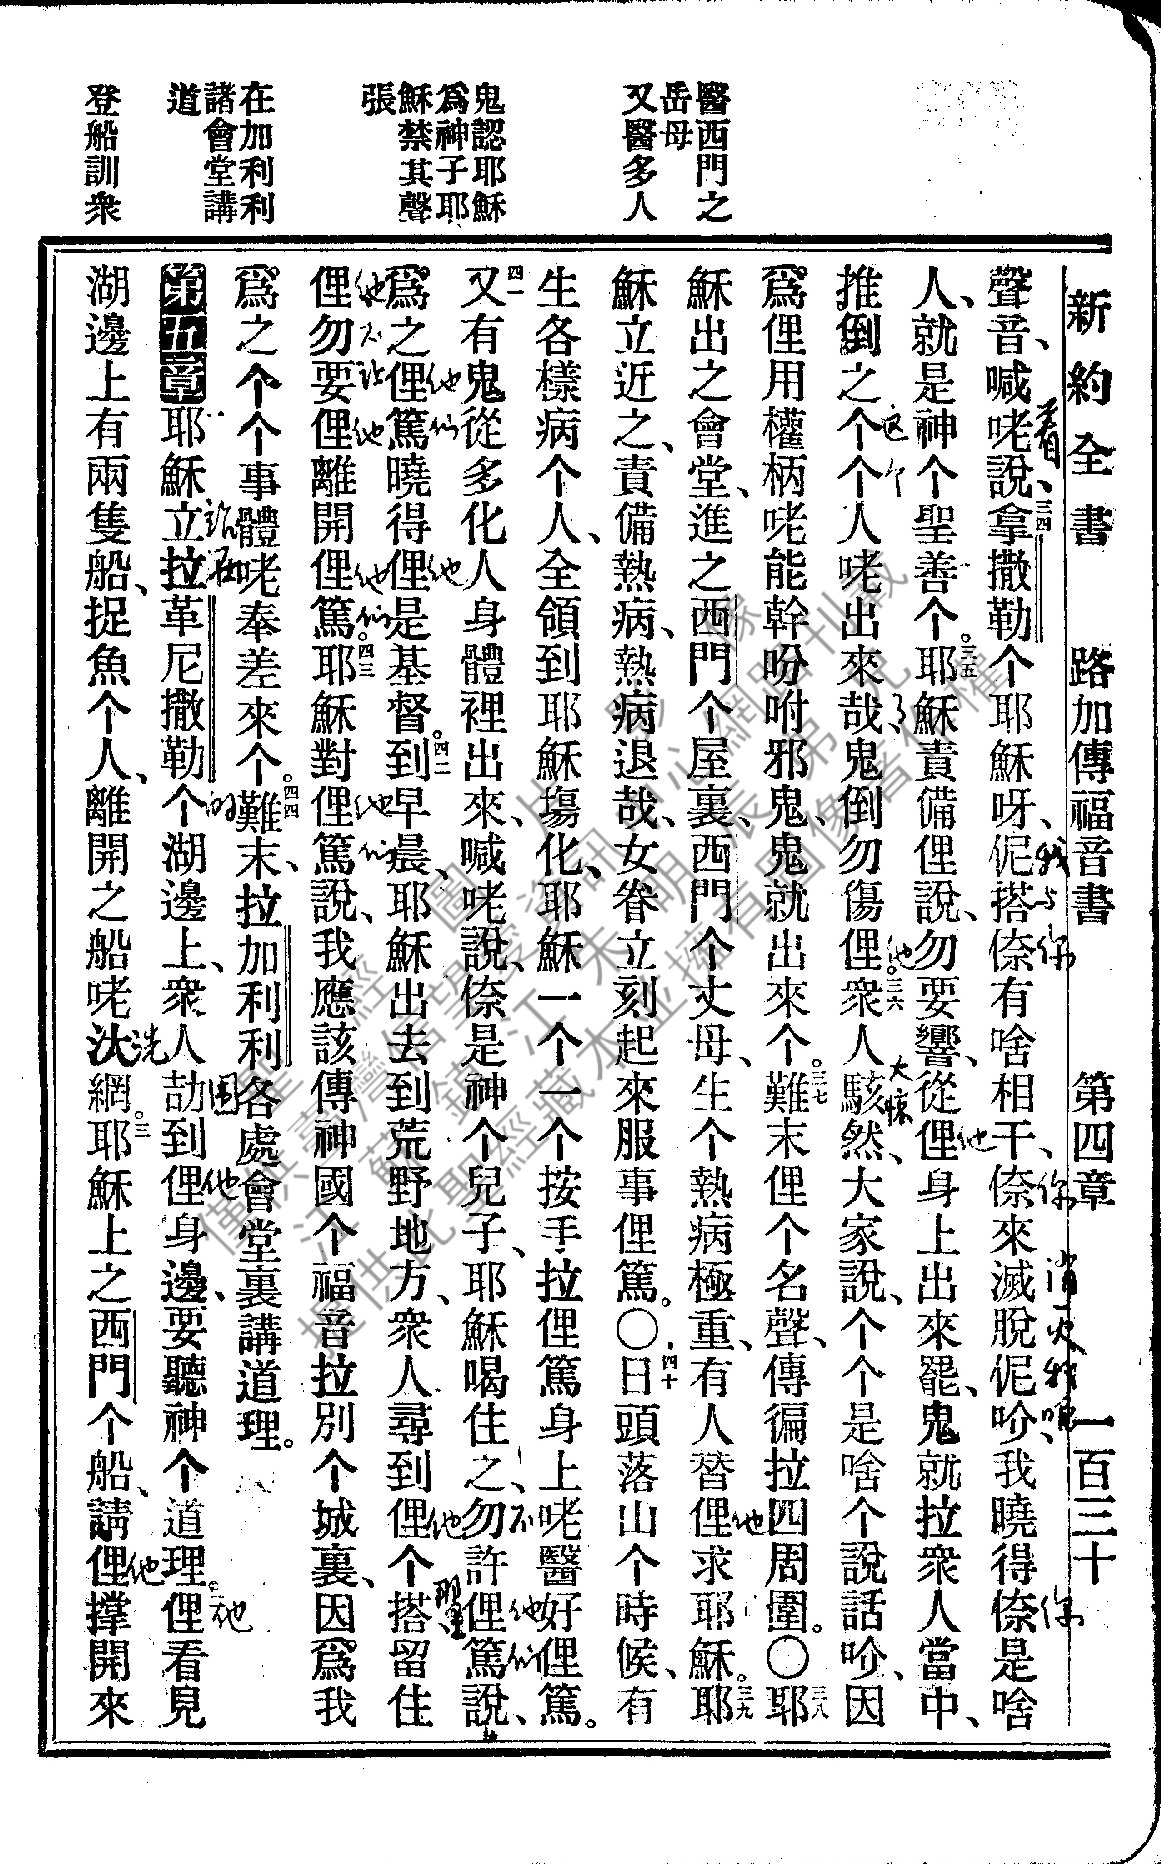 新約全書 路加傳福音書 第四章 一百三十
醫西門之
岳母
又醫多人
鬼認耶穌
爲神子耶
穌禁其聲
張
在加利利
諸會堂講
道
登船訓衆
聲音、喊咾說、三四拿撒勒个耶穌呀、伲搭倷有啥相干、倷來滅脫伲吤、我曉得倷是啥
人、就是神个聖善个。三五耶穌責備俚說、勿要響、從俚身上出來罷、鬼就拉衆人當中、
推倒之个个人咾出來哉、鬼倒勿傷俚。三六衆人駭然、大家說、个个是啥个說話吤、因
爲俚用權柄咾能幹吩咐邪鬼、鬼就出來个。三七難末俚个名聲、傳徧拉四周圍。〇三八耶
穌出之會堂、進之西門个屋裏、西門个丈母、生个熱病極重、有人替俚求耶穌。三九耶
穌立近之、責備熱病、熱病退哉、女眷立刻起來服事俚篤。〇四十日頭落山个時候、有
生各樣病个人、全領到耶穌塲化、耶穌一个一个按手拉俚篤身上咾醫好俚篤。
四一又有鬼從多化人身體裡出來、喊咾說、倷是神个兒子、耶穌喝住之、勿許俚篤說、
爲之俚篤曉得俚是基督。四二到早晨、耶穌出去到荒野地方、衆人尋到俚个搭留住
俚勿要俚離開俚篤。四三耶穌對俚篤說、我應該傳神國个福音拉別个城裏、因爲我
爲之个个事體咾奉差來个。四四難末、拉加利利各處會堂裏講道理。
第五章耶穌立拉革尼撒勒个湖邊上、衆人劼到俚身邊、要聽神个道理。二俚看見
湖邊上有兩隻船、捉魚个人、離開之船咾汏網。三耶穌上之西門个船、請俚撑開來